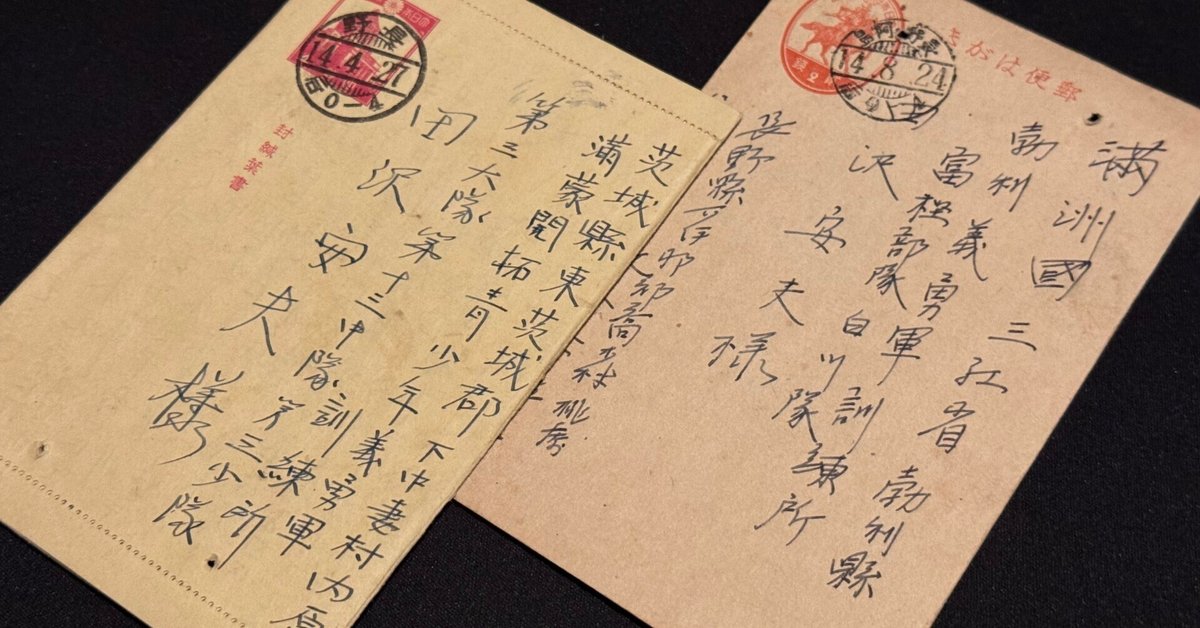 茨城縣東茨城郡下中妻村内原
満蒙開拓青少年義勇軍
訓練所
第三大隊第十三中隊第三少隊
田沢安夫様
封緘葉書
長野
14.4.27
郵便はがき
満洲國三江省勃利縣
勃利義勇軍訓練所
白川隊
沢安夫様
14.8.24
長野縣